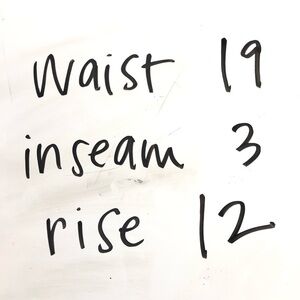 waist 19
inseam 3
rise 12